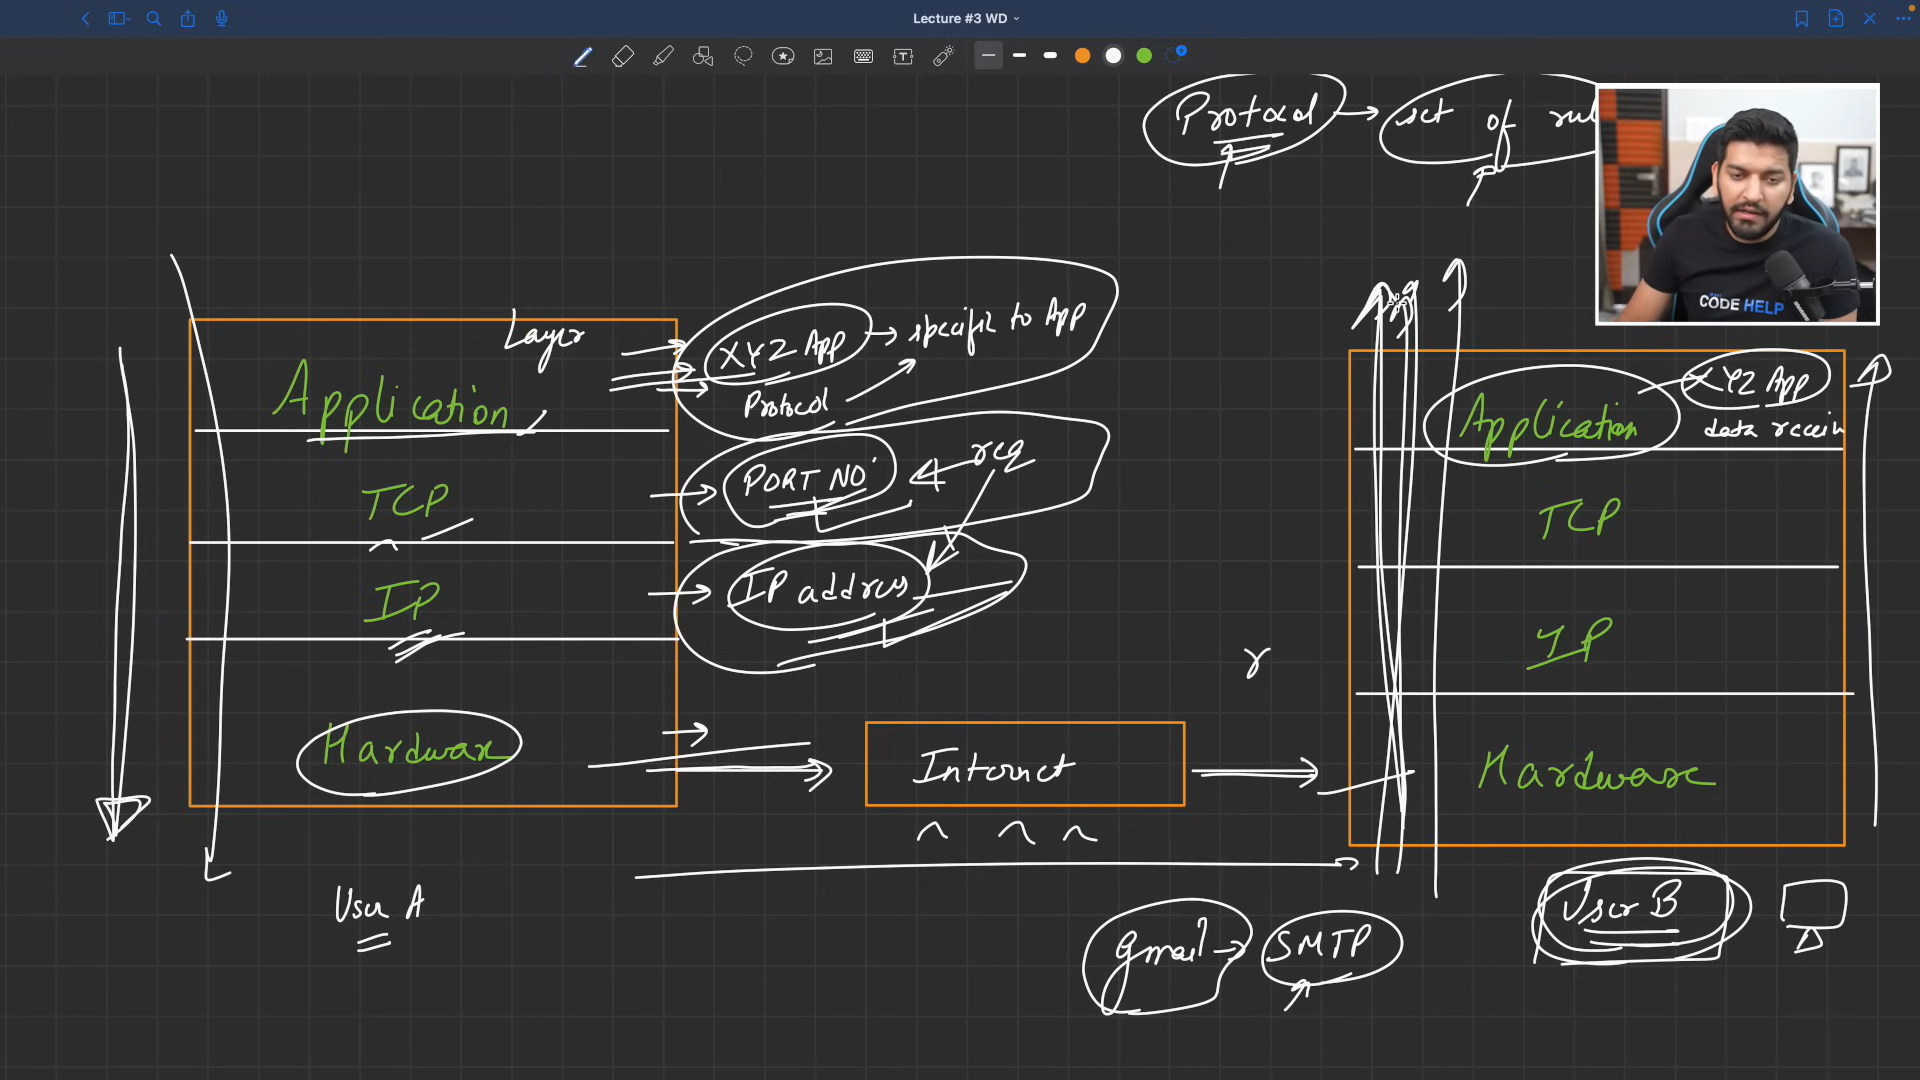 Lecture #3 WD
Protocol → set of rul
CODE HELP
Layer
Application
XYZ App → specific to App
Protocol
TCP
PORT NO.
req
IP
IP address
Hardware
Internet
r
Application
XYZ App
data receiv
TCP
IP
Hardware
User A
gmail → SMTP
User B